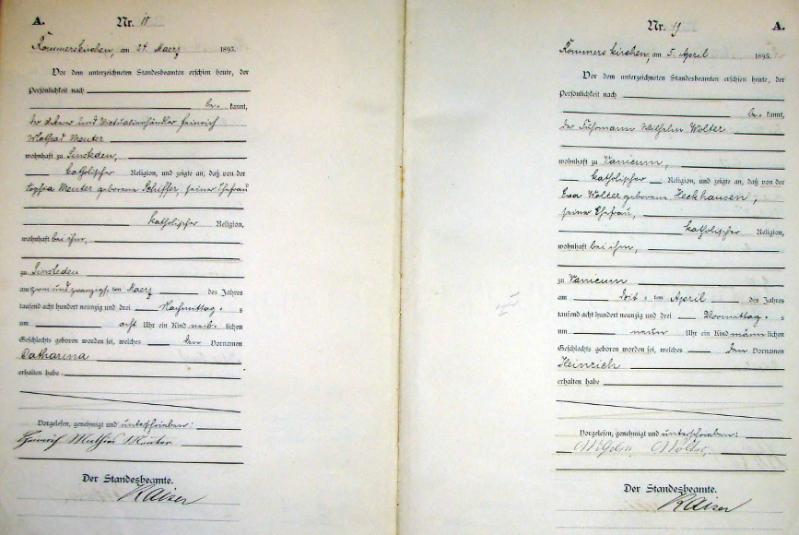 A.
Nr. 18
Rommerskirchen, am 24 Maerz 1893.
Vor dem unterzeichneten Standesbeamten erschien heute, der
Persönlichkeit nach
be kannt,
der und Victualienhändler Heinrich
Mathias Meuter
wohnhaft zu Sinsteden,
katholischer Religion, und zeigte an, daß von der
Sophia Meuter geborene Schiffer, seiner Ehefrau
katholischer Religion,
wohnhaft bei ihm,
zu Sinsteden
am zwei und zwanzigsten Maerz des Jahres
tausend acht hundert neunzig und drei Nachmittag s
um acht Uhr ein Kind weib lichen
Geschlechts geboren worden sei, welches den Vornamen
Catharina
erhalten habe
Vorgelesen, genehmigt und unterschrieben:
Heinrich Mathias Meuter
Der Standesbeamte.
Kaiser
Nr. 19
A.
Rommerskirchen, am 5. April 1893.
Vor dem unterzeichneten Standesbeamten erschien heute, der
Persönlichkeit nach
be kannt,
der Fuhrmann Wilhelm Wolter
wohnhaft zu Vanicum,
katholischer Religion, und zeigte an, daß von der
Eva Wolter geborene Heckhausen,
seiner Ehefrau,
katholischer Religion,
wohnhaft bei ihm,
zu Vanicum
am April des Jahres
tausend acht hundert neunzig und drei Vormittag s
um neun Uhr ein Kind männ lichen
Geschlechts geboren worden sei, welches den Vornamen
Heinrich
erhalten habe
Vorgelesen, genehmigt und unterschrieben:
Wilhelm Wolter,
Der Standesbeamte.
Kaiser